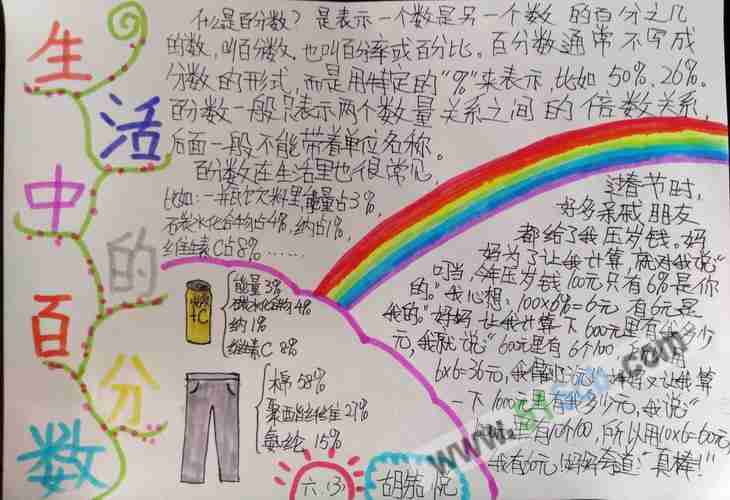 生活中的百分数
什么是百分数？是表示一个数是另一个数的百分之几
的数，叫百分数。也叫百分率或百分比。百分数通常不写成
分数的形式，而是用特定的"%"来表示，比如50%、26%。
百分数一般只表示两个数量关系之间的倍数关系，
后面一般不能带着单位名称。
百分数在生活里也很常见，
比如：一瓶饮料里能量占3%，
碳水化合物占4%，纳占1%，
维生素C占8%……
能量3%
碳水化合物4%
纳1%
维生素C 8%
+C
棉58%
聚酯纤维27%
氨纶15%
过春节时，
好多亲戚朋友
都给了我压岁钱。妈
妈为了让我计算，就对我说"
叮当，今年压岁钱100元只有6%是你
的。"我心想：100×6%=6元，有6元是
我的。"好妈，让我计算一下600元里有我多少
元，我就说"600元里有6个100，
6×6=36元，我有36元
一下1000元里有我多少元，我说"
里有10个100，所以用10×6=60元，
我有60元！"妈妈夸道："真棒！"
六.(3)
胡
www.
.com